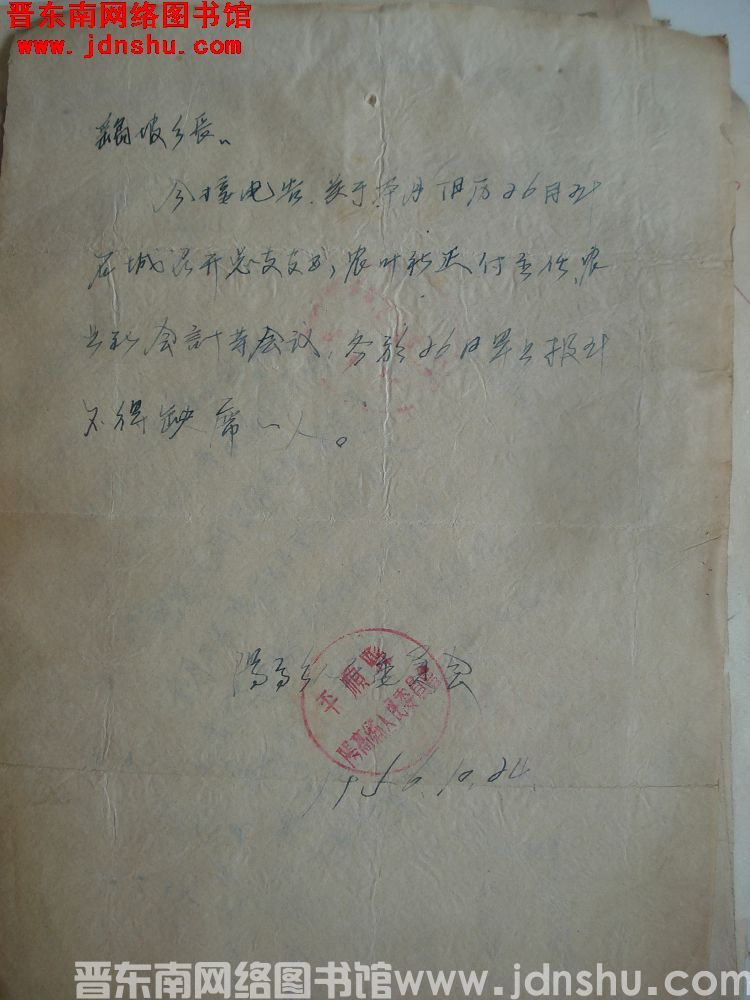 晋东南网络图书馆
www.jdnshu.com
坡乡长
今接电告，关于本月旧历26日
在城召开总支支书，农叶社正付主任，农
叶社会計等会议，务於26日早上报
不得缺席一人。
阳高乡人民委員会
平順縣
陽高鄉人民委員會
1956.10.24
晋东南网络图书馆www.jdnshu.com